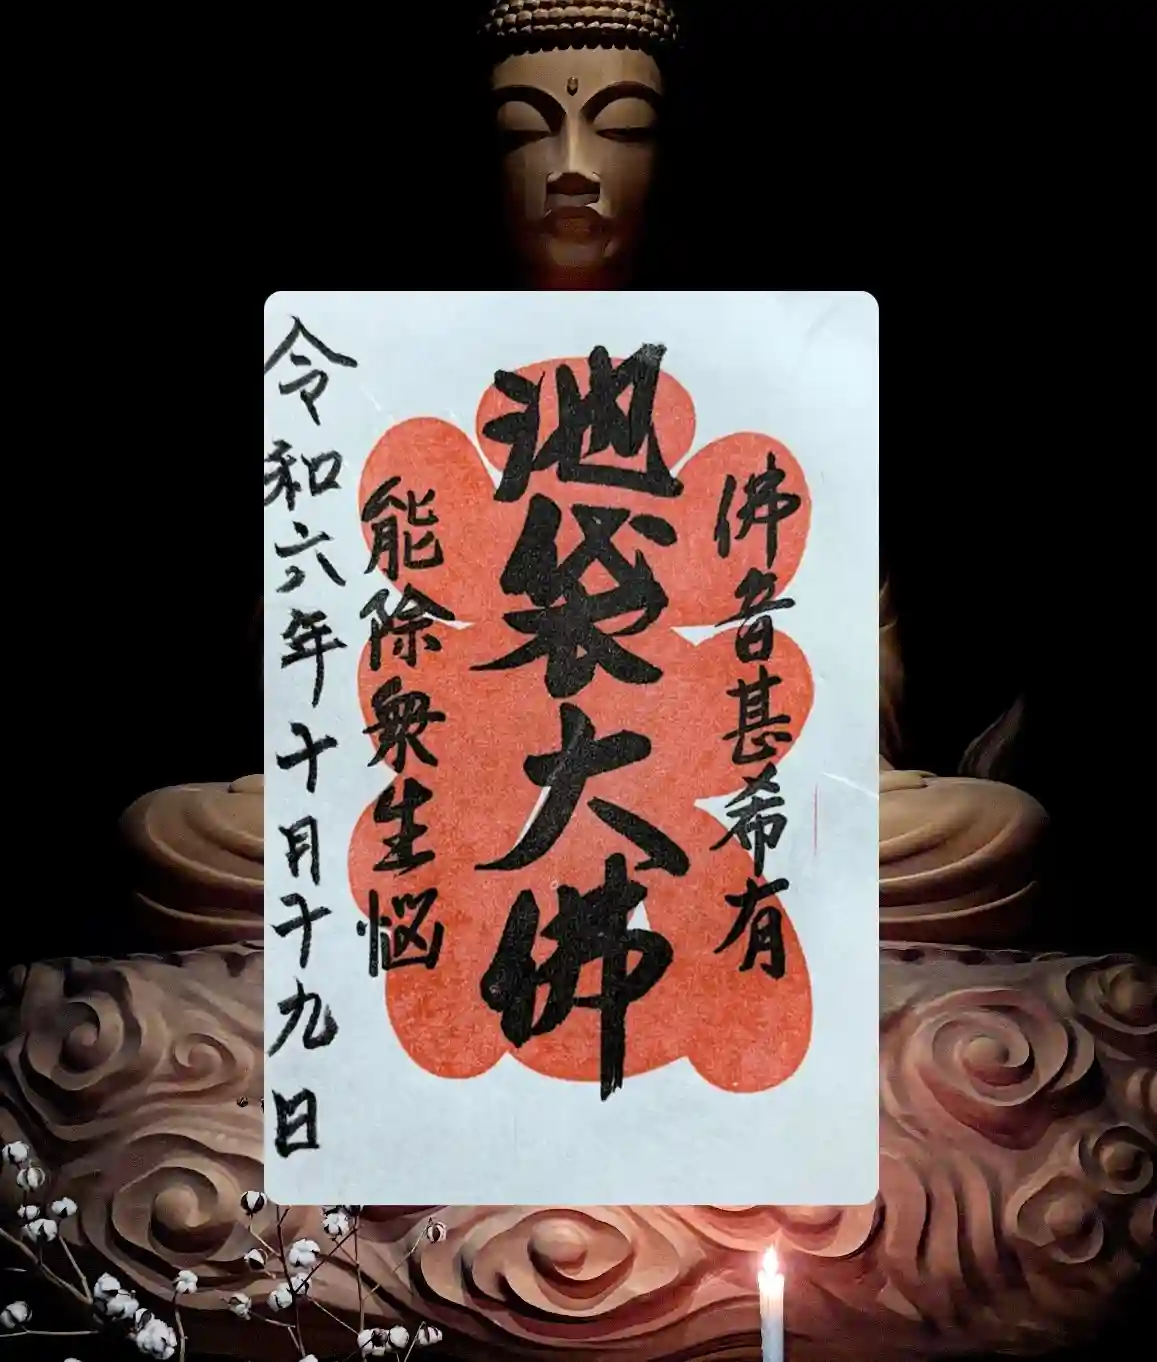 佛音甚希有
池袋大佛
能除衆生悩
令和六年十月十九日